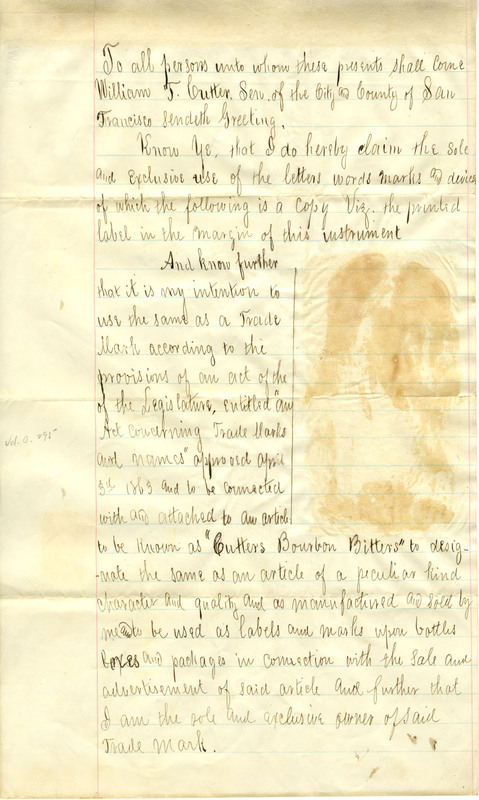 To all persons unto whom these presents shall Come
William F. Cutter, Sen. of the City and County of San
Francisco Sendeth Greeting.
Know Ye, that I do hereby claim the Sole
and exclusive use of the letters words marks and devices
of which the following is a Copy Viz. the printed
label in the margin of this instrument
And know further
that it is my intention to
use the same as a Trade
Mark according to the
provisions of an act of the
of the Legislature, entitled "an
Act Concerning Trade Marks
and names" approved April
3rd 1863 and to be connected
with and attached to an article
to be known as "Cutters Bourbon Bitters" to desig-
-nate the same as an article of a peculiar kind
character and quality and as manufactured and sold by
me and to be used as labels and marks upon bottles
boxes and packages in connection with the sale and
advertisement of said article and further that
I am the sole and exclusive owner of said
Trade Mark.
Vol. 0. 295